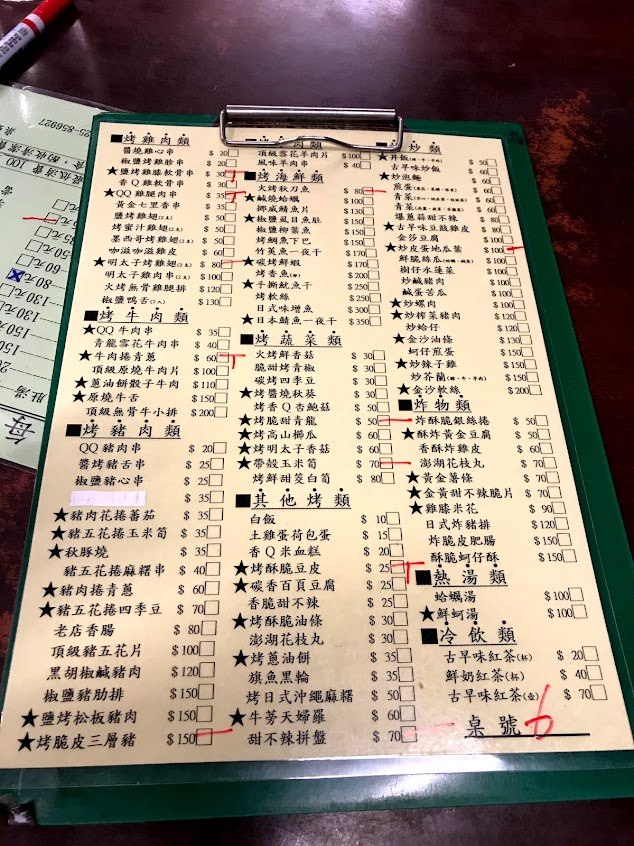 25-856927
■烤雞肉類
醬燒雞心串 $ 20
椒鹽烤雞胗串 $ 20
★鹽烤雞膝軟骨串 $ 30
香Q雞軟骨串 $ 30
★QQ雞腿肉串 $ 35
黃金七里香串 $ 35
鹽烤雞翅(2支) $ 50
烤蜜汁雞翅(2支) $ 50
墨西哥烤雞翅(2支) $ 50
咖滋咖滋雞皮 $ 50
★明太子烤雞翅(2支) $ 80
明太子雞肉串(2支) $100
火烤無骨雞腿排 $120
椒鹽鴨舌(7入) $130
■烤牛肉類
★QQ牛肉串 $ 35
青龍雪花牛肉串 $ 40
★牛肉捲青蔥 $ 60
頂級原燒牛肉片 $100
★蔥油餅骰子牛肉 $110
★原燒牛舌 $150
頂級無骨牛小排 $200
■烤豬肉類
QQ豬肉串 $ 20
醬烤豬舌串 $ 25
椒鹽豬心串 $ 25
$ 35
★豬肉花捲蕃茄 $ 35
★豬五花捲玉米筍 $ 35
★秋豚燒 $ 35
豬五花捲麻糬串 $ 40
★豬肉捲青蔥 $ 60
★豬五花捲四季豆 $ 70
老店香腸 $ 80
頂級豬五花片 $100
黑胡椒鹹豬肉 $120
椒鹽豬肋排 $150
★鹽烤松板豬肉 $150
★烤脆皮三層豬 $150
頂級雪花羊肉片 $100
風味羊肉串 $ 40
■烤海鮮類
火烤秋刀魚 $ 80
★鹹燒蛤蠣 $100
挪威鯖魚片 $100
★椒鹽風目魚肚 $100
椒鹽柳葉魚 $100
烤鯛魚下巴 $150
竹筴魚一夜干 $170
★碳烤鮮蝦 $170
烤香魚 $200
★手撕魷魚干 $250
烤軟絲 $250
日式味增魚 $300
★日本鯖魚一夜干 $350
■烤蔬菜類
火烤鮮香菇 $ 30
脆甜烤青椒 $ 30
碳烤四季豆 $ 30
★烤醬燒秋葵 $ 30
烤香Q杏鮑菇 $ 50
★烤脆甜青龍 $ 50
★烤高山櫛瓜 $ 60
★烤明太子香菇 $ 60
★帶殼玉米筍 $ 70
烤鮮甜筊白筍 $ 80
■其他烤類
白飯 $ 10
土雞蛋荷包蛋 $ 15
香Q米血糕 $ 20
★烤酥脆豆皮 $ 25
★碳香百頁豆腐 $ 25
香脆甜不辣 $ 25
★烤酥脆油條 $ 30
澎湖花枝丸 $ 30
★烤蔥油餅 $ 35
旗魚黑輪 $ 35
烤日式沖繩麻糬 $ 50
★牛蒡天婦羅 $ 60
甜不辣拼盤 $ 70
古早味炒飯 $ 60
★炒泡麵 $ 60
★古早味豆鼓雞皮 $ 80
金莎豆腐 $100
★炒皮蛋地瓜葉 $100
鮮脆絲瓜 $100
樹仔水蓮菜 $100
炒鹹豬肉 $100
鹹蛋苦瓜 $100
★炒螺肉 $100
★炒榨菜豬肉 $120
炒蛤仔 $120
★金沙油條 $130
蚵仔煎蛋 $150
★炒辣子雞 $150
★金沙軟絲 $200
■炸物類
★炸酥脆銀絲捲 $ 50
★酥炸黃金豆腐 $ 50
香酥炸雞皮 $ 60
澎湖花枝丸 $ 70
★黃金薯條 $ 70
★金黃甜不辣脆片 $ 70
★雞膝米花 $ 90
日式炸豬排 $120
炸脆皮肥腸 $150
酥脆蚵仔酥 $150
■熱湯類
蛤蠣湯 $100
★鮮蚵湯 $100
■冷飲類
古早味紅茶(杯) $ 20
鮮奶紅茶(杯) $ 40
古早味紅茶(壺) $ 70
桌號 6